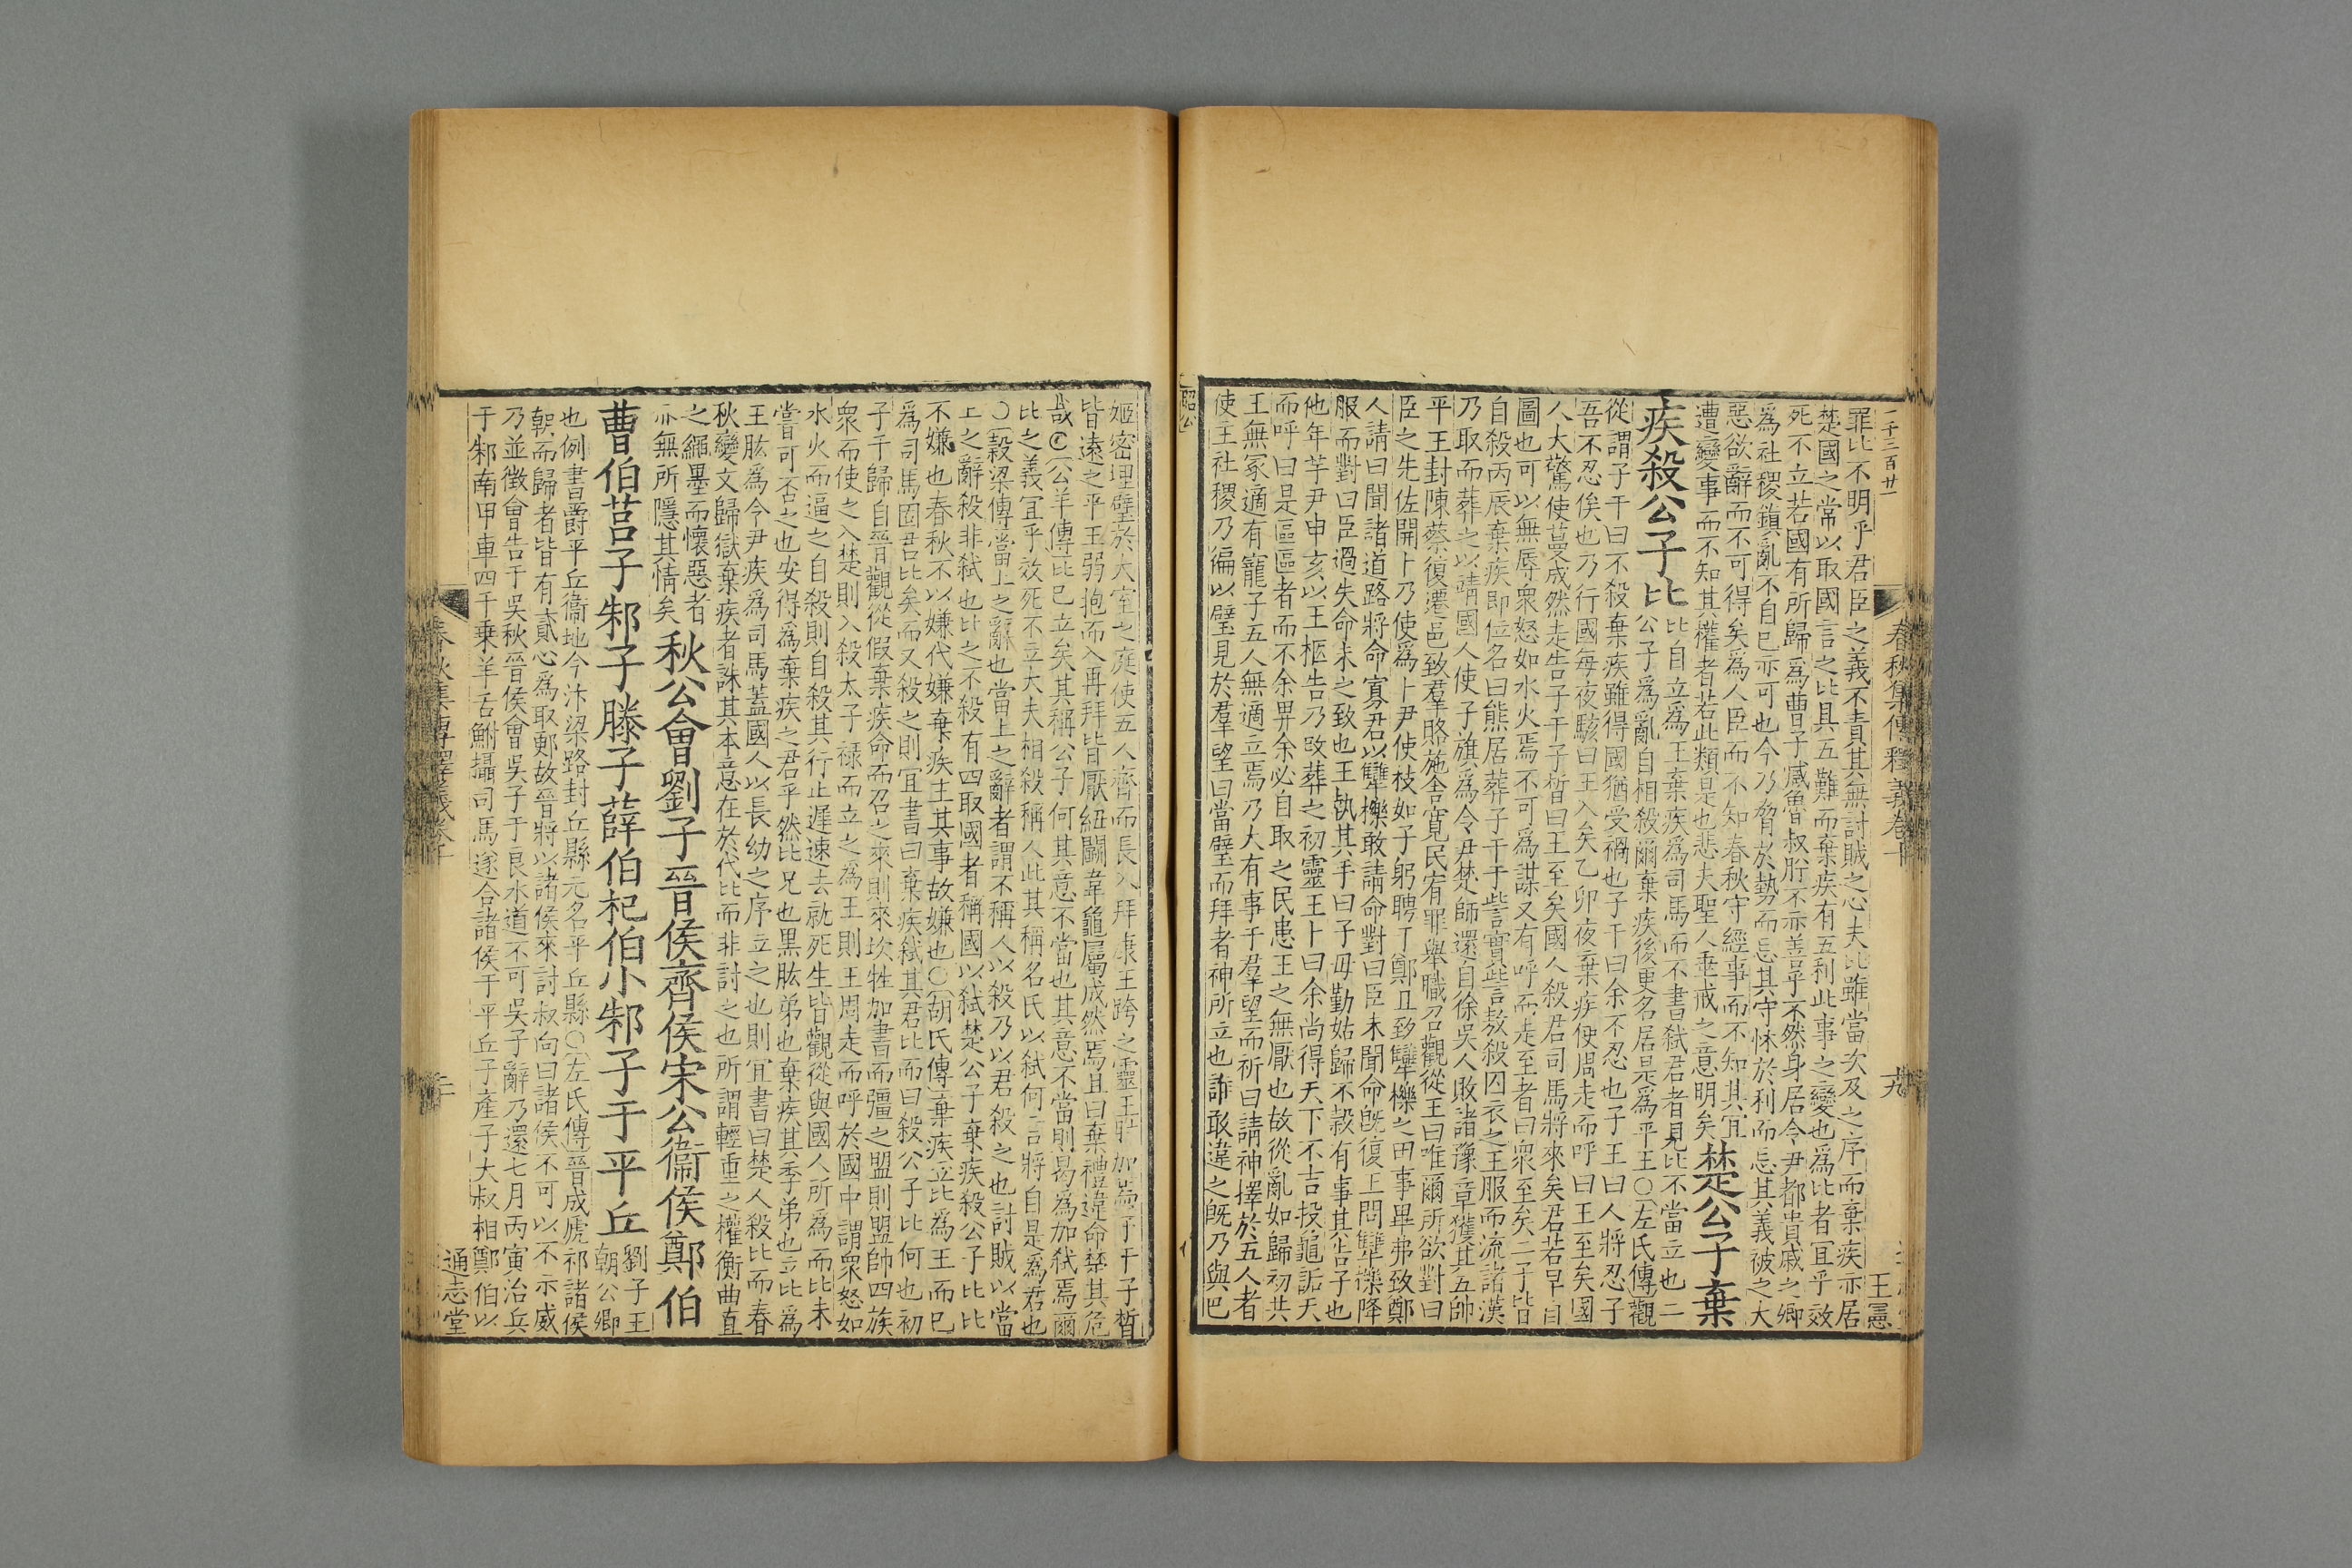 一千三百廿一
春秋集傳釋義卷十
九
王冕
罪比不明乎君臣之義不責其無討賊之心夫比雖當次及之序而棄疾亦居
楚國之常以取國言之比具五難而棄疾有五利此事之變也爲比者宜乎效
死不立若國有所歸爲曹子臧魯叔肸不亦善乎不然身居令尹都貴戚之卿
爲社稷鎮亂不自已亦可也今乃脅於勢而忘其守怵於利而忘其義被之大
惡欲辭而不可得矣爲人臣而不知春秋守經事而不知其宜楚公子棄
遭變事而不知其權者若此類是也悲夫聖人垂戒之意明矣
疾殺公子比比自立爲王棄疾爲司馬而不書弒君者見比不當立也二
公子爲亂自相殺爾棄疾後更名居是爲平王〇左氏傳觀
從謂子干曰不殺棄疾雖得國猶受禍也子干曰余不忍也子玉曰人將忍子
吾不忍俟也乃行國每夜駭曰王入矣乙卯夜棄疾使周走而呼曰王至矣國
人大驚使蔓成然走告子干子晳曰王至矣國人殺君司馬將來矣君若早自
圖也可以無辱衆怒如水火焉不可爲謀又有呼而走至者曰衆至矣二子皆
自殺丙辰棄疾即位名曰熊居葬子干于訾實訾敖殺囚衣之王服而流諸漢
乃取而葬之以靖國人使子旗爲令尹楚師還自徐吳人敗諸豫章獲其五帥
平王封陳蔡復遷邑致羣賂施舍寬民宥罪舉職召觀從王曰唯爾所欲對曰
臣之先佐開卜乃使爲卜尹使枝如子躬聘于鄭且致犫櫟之田事畢弗致鄭
人請曰聞諸道路將命寡君以犫櫟敢請命對曰臣未聞命旣復王問犫櫟降
服而對曰臣過失命未之致也王執其手曰子毋勤姑歸不穀有事其告子也
他年芋尹申亥以王柩告乃改葬之初靈王卜曰余尚得天下不吉投龜詬天
而呼曰是區區者而不余畀余必自取之民患王之無厭也故從亂如歸初共
王無冢適有寵子五人無適立焉乃大有事于羣望而祈曰請神擇於五人者
使主社稷乃徧以璧見於羣望曰當璧而拜者神所立也誰敢違之旣乃與巴
昭公
姬密埋璧於大室之庭使五人齊而長入拜康王跨之靈王肘加焉子干子晳
皆遠之平王弱抱而入再拜皆厭紐鬭韋龜屬成然焉且曰棄禮違命楚其危
哉〇公羊傳比已立矣其稱公子何其意不當也其意不當則曷爲加弒焉爾
比之義宜乎效死不立大夫相殺稱人此其稱名氏以弒何言將自是爲君也
〇穀梁傳當上之辭也當上之辭者謂不稱人以殺乃以君殺之也討賊以當
上之辭殺非弒也比之不殺有四取國者稱國以弒楚公子棄疾殺公子比比
不嫌也春秋不以嫌代嫌棄疾主其事故嫌也〇胡氏傳棄疾立比爲王而已
爲司馬固君比矣而又殺之則宜書曰棄疾弒其君比而曰殺公子比何也初
子干歸自晉觀從假棄疾命而召之來則來坎牲加書而彊之盟則盟帥四族
衆而使之入楚則入殺太子祿而立之爲王則王周走而呼於國中謂衆怒如
水火而逼之自殺則自殺其行止遲速去就死生皆觀從與國人所爲而比未
嘗可否之也安得爲棄疾之君乎然比兄也黑肱弟也棄疾其季弟也立比爲
王肱爲令尹疾爲司馬蓋國人以長幼之序立之也則宜書曰楚人殺比而春
秋變文歸獄棄疾者誅其本意在於代比而非討之也所謂輕重之權衡曲直
之繩墨而懷惡者
亦無所隱其情矣秋公會劉子晉侯齊侯宋公衞侯鄭伯
曹伯莒子邾子滕子薛伯杞伯小邾子于平丘劉子王
朝公卿
也例書爵平丘衞地今汴梁路封丘縣元名平丘縣〇左氏傳晉成虒祁諸侯
朝而歸者皆有貳心爲取郠故晉將以諸侯來討叔向曰諸侯不可以不示威
乃並徵會告于吳秋晉侯會吳子于良水道不可吳子辭乃還七月丙寅治兵
于邾南甲車四千乗羊舌鮒攝司馬遂合諸侯于平丘子產子大叔相鄭伯以
春秋集傳釋義卷十
二十
通志堂